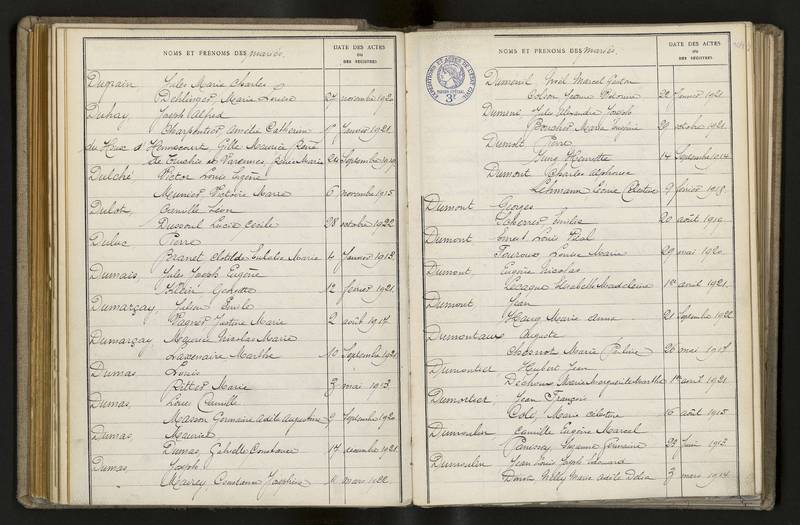 NOMS ET PRÉNOMS DES mariés.
DATE DES ACTES
OU
DES REGISTRES
Dugrain Jules Marie Charles
Dehlinger, Marie Louise 27 novembre 1920
Duhay Joseph Alfred
Charpentier Amélie Catherine 1er Janvier 1921
du Haz d'Hennocourt Gille Maurice René
de Vuchie et Varennes, Marie 24 Septembre 1919
Dulché Victor Louis Eugène
Meunier Victoire Marie 6 novembre 1915
Dulot, Camille Léon
Dussoul Lucie Cécile 28 octobre 1922
Duluc Pierre
Branet Clotilde Eulalie Marie 4 Janvier 1913
Dumais, Jules Joseph Eugène
Georgette 12 février 1921
Dumarçay, Emile
Vagner Justine Marie 2 août 1917
Dumarçay Maurice Nicolas Marie
Lazzenaire Marthe 10 Septembre 1921
Dumas Louis
Ritter Marie 3 mai 1913
Dumas, Louis Camille
Masson Germaine Adèle Augustine 9 Septembre 1920
Dumas, Maurice
Dumas, Gabrielle Constance 17 décembre 1921
Dumas, Joseph
Mairey, Constance Joséphine 11 mars 1922
NOMS ET PRÉNOMS DES mariés.
DATE DES ACTES
OU
DES REGISTRES
EXPÉDITIONS ET ACTES DE L'ÉTAT CIVIL
PAPIER SPÉCIAL
3F
Dumenil Noël Marcel Gaston
Colson Jeanne Victorine 22 Janvier 1921
Dumeni Jules Alexandre Joseph
Boucher Marie Eugénie 29 octobre 1921
Dumolt Pierre
Jung Henriette 14 Septembre 1914
Dumont Charles Alphonse
Lehmann Léonie Célestine 9 février 1918
Dumont Georges
Scherrer, Emilie 20 août 1919
Dumont Ernest Louis Paul
Fouroux Louise Marie 29 mai 1920
Dumont, Eugène Nicolas
Lecagne Elisabelle Madeleine 1er avril 1921
Dumont Jean
Haug Marie Anna 21 Septembre 1922
Dumontaux Auguste
Marie Pauline 26 mai 1917
Dumontier Hubert Jean
Marie Marguerite Marthe 1er avril 1921
Dumortier, Jean François
Cols, Marie Célestine 16 août 1915
Dumoulin Camille Eugène Marcel
Suzanne Germaine 23 Juin 1913
Dumoulin Jean Louis Joseph Edouard
Nelly Marie Adèle Délia 3 mars 1914